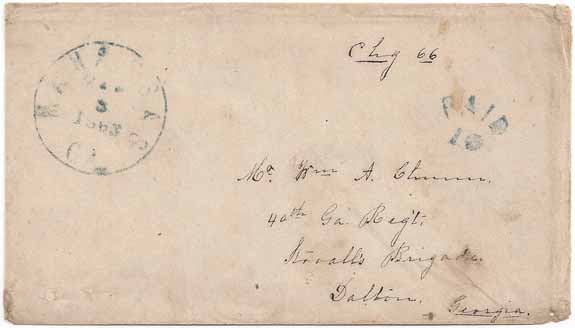 Chg 66
3
1863
Ga
PAID
10
Mr. Wm A. Chunn.
40th Ga Regt.
Stovall's Brigade.
Dalton.
Georgia.